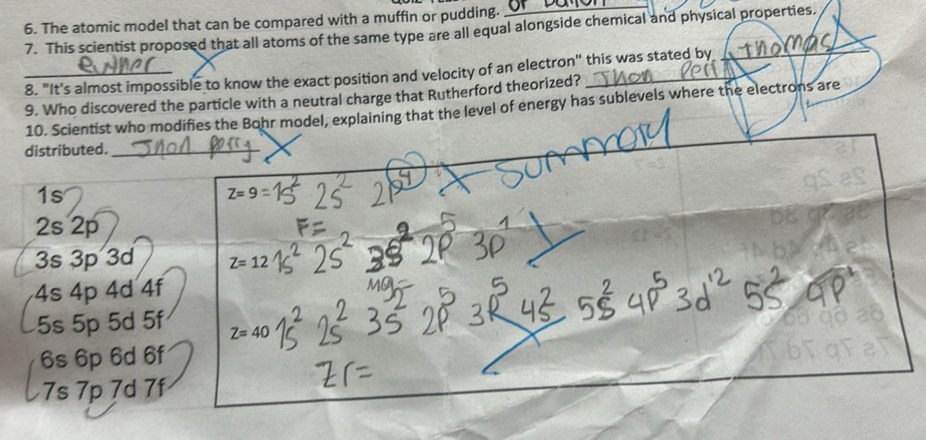 6. The atomic model that can be compared with a muffin or pudding.
7. This scientist proposed that all atoms of the same type are all equal alongside chemical and physical properties.
8. "It's almost impossible to know the exact position and velocity of an electron" this was stated by thomas
9. Who discovered the particle with a neutral charge that Rutherford theorized? Jhon
10. Scientist who modifies the Bohr model, explaining that the level of energy has sublevels where the electrons are
distributed. Jhon
1s
2s 2p
3s 3p 3d
4s 4p 4d 4f
5s 5p 5d 5f
6s 6p 6d 6f
7s 7p 7d 7f
Z=9= 1s² 2s² 2p⁴
F=
Z=12 1s² 2s² 3s² 2p⁵ 3p¹
Mg=
Z=40 1s² 2s² 3s² 2p⁵ 3p⁵ 4s² 5s² 4p⁵ 3d¹² 5s² 4p¹
Zr=